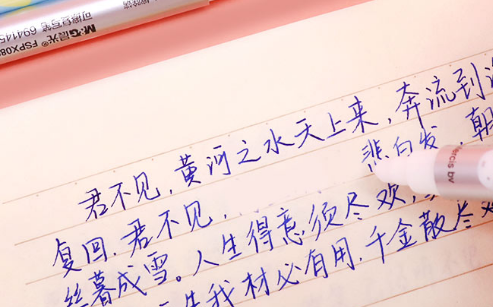 M&G晨光®
694145
君不见,黄河之水天上来,奔流到
悲白发,朝
复回.君不见,......
丝暮成雪。人生得意须尽欢,
生我材必有用.千金散尽